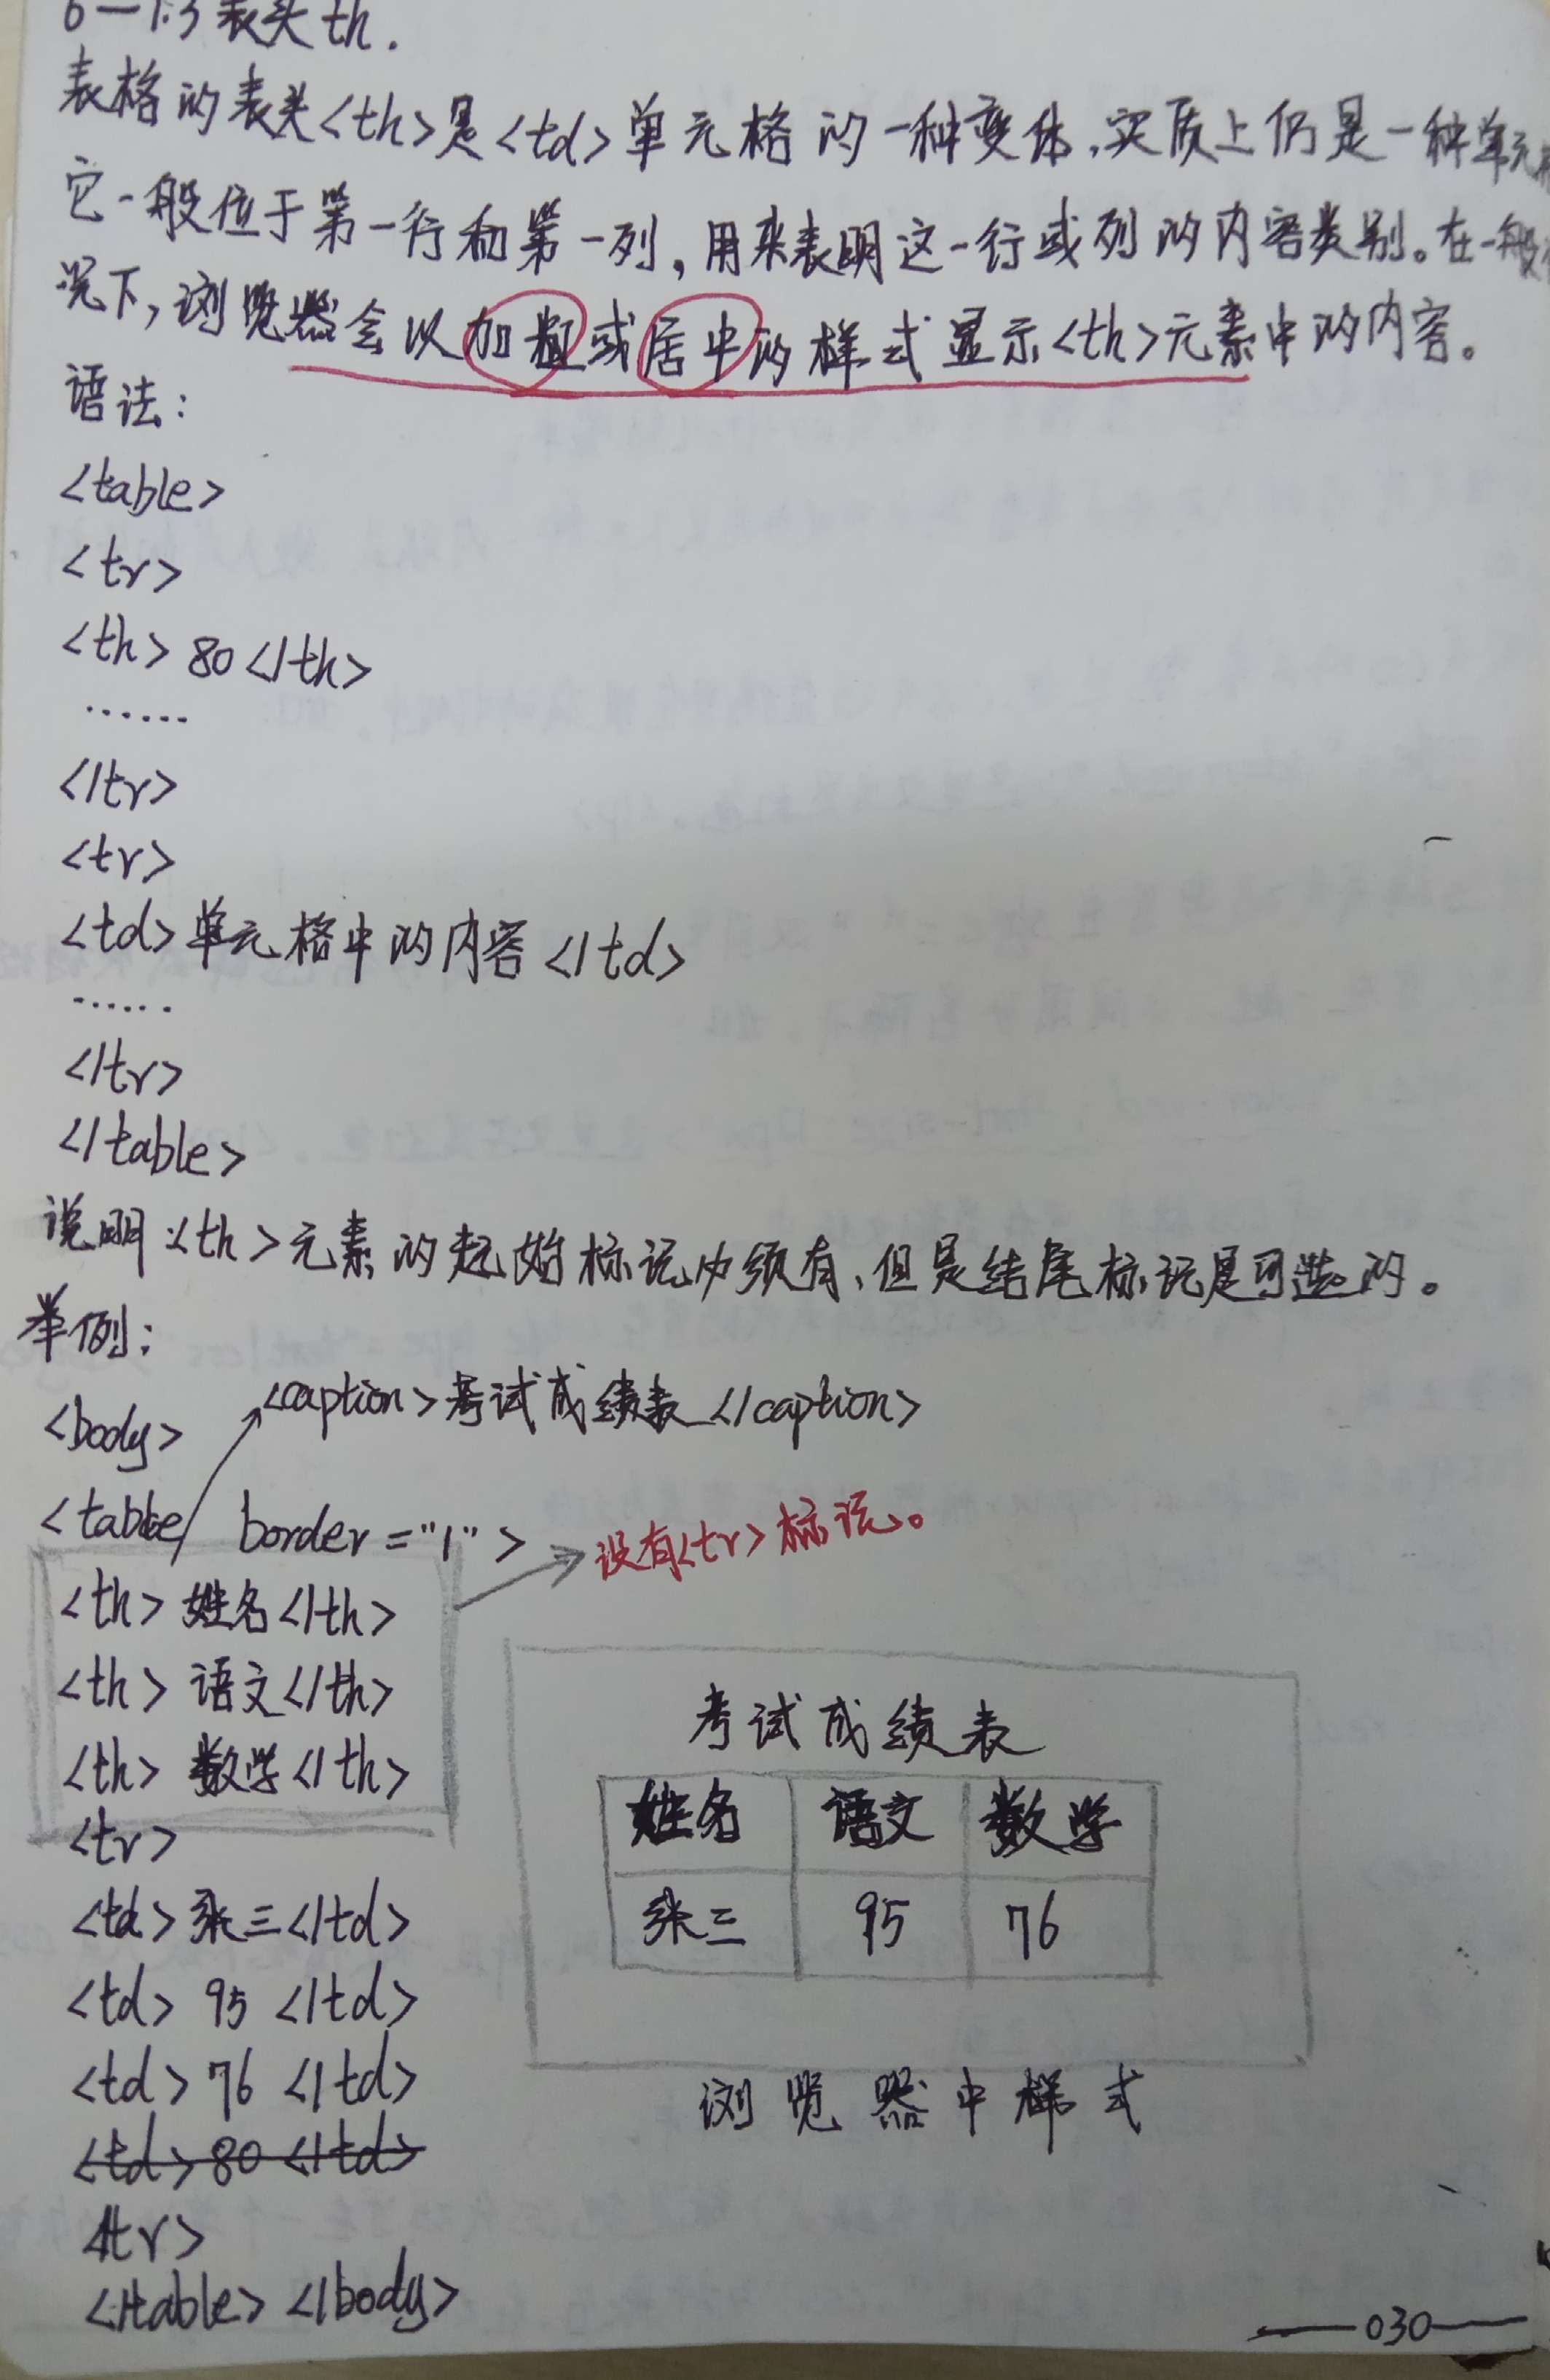 6-1.3 表头th.
表格的表头<th>是<td>单元格的一种变体,实质上仍是一种单元
它一般位于第一行和第一列,用来表明这一行或列的内容类别。在一般
况下,浏览器会以加粗或居中的样式显示<th>元素中的内容。
语法:
<table>
<tr>
<th>80</th>
......
</tr>
<tr>
<td>单元格中的内容</td>
......
</tr>
</table>
说明:<th>元素的起始标记必须有,但是结尾标记是可选的。
举例:
<caption>考试成绩表</caption>
<body>
<table border="1">
没有<tr>标记。
<th>姓名</th>
<th>语文</th>
<th>数学</th>
<tr>
<td>张三</td>
<td>95</td>
<td>76</td>
<td>80</td>
</tr>
</table></body>
考试成绩表
姓名 语文 数学
张三 95 76
浏览器中样式
030